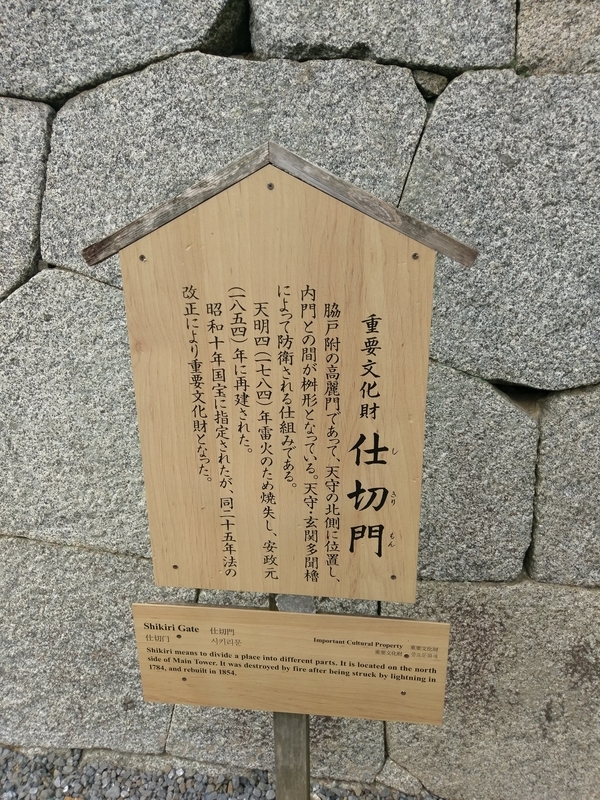 重要文化財 仕切門
し きり もん
脇戸附の高麗門であって、天守の北側に位置し、
内門との間が桝形となっている。天守・玄関多聞櫓
によって防衛される仕組みである。
天明四(一七八四)年雷火のため焼失し、安政元
(一八五四)年に再建された。
昭和十年国宝に指定されたが、同二十五年法の
改正により重要文化財となった。
Shikiri Gate 仕切門
仕切门 시키리문
Important Cultural Property 重要文化財
重要文化财
Shikiri means to divide a place into different parts. It is located on the north
side of Main Tower. It was destroyed by fire after being struck by lightning in
1784, and rebuilt in 1854.